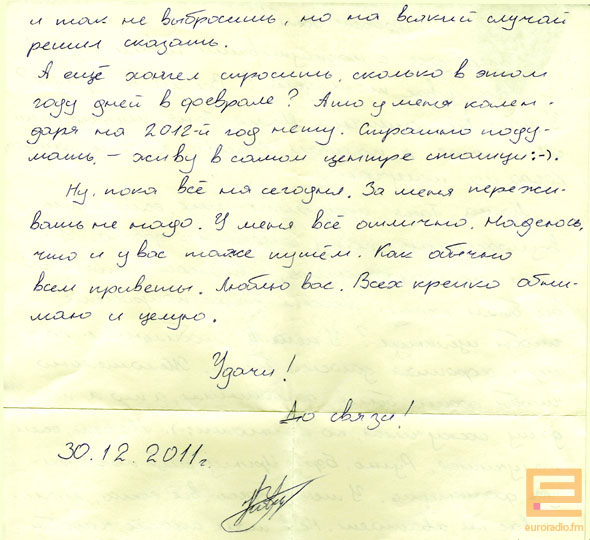 и так не выбросить, но на всякий случай
решил сказать.
А ещё хотел спросить, сколько в этом
году дней в феврале? А то у меня кален-
даря на 2012-й год нету. Страшно поду-
мать, – живу в самом центре столицы:-).
Ну, пока всё на сегодня. За меня пережи-
вать не надо. У меня всё отлично. Надеюсь,
что и у вас тоже путём. Как обычно
всем приветы. Люблю вас. Всех крепко обни-
маю и целую.
Удачи!
До связи!
30.12.2011г.
euroradio.fm